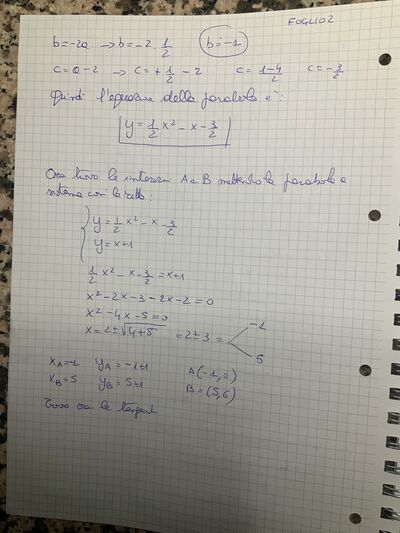 FOGLIO 2
b=-2a → b=-2·1/2 b=-1
c=a-2 → c=+1/2-2 c=1-4/2 c=-3/2
Quindi l'equazione della parabola è:
y=1/2x²-x-3/2
Ora trovo le intersezioni A e B mettendo la parabola a
sistema con la retta:
y=1/2x²-x-3/2
y=x+1
1/2x²-x-3/2=x+1
x²-2x-3-2x-2=0
x²-4x-5=0
x=2±√4+5 =2±3= -1
5
xA=-1 yA=-1+1 A(-1,0)
xB=5 yB=5+1 B=(5,6)
Trovo ora le tangent